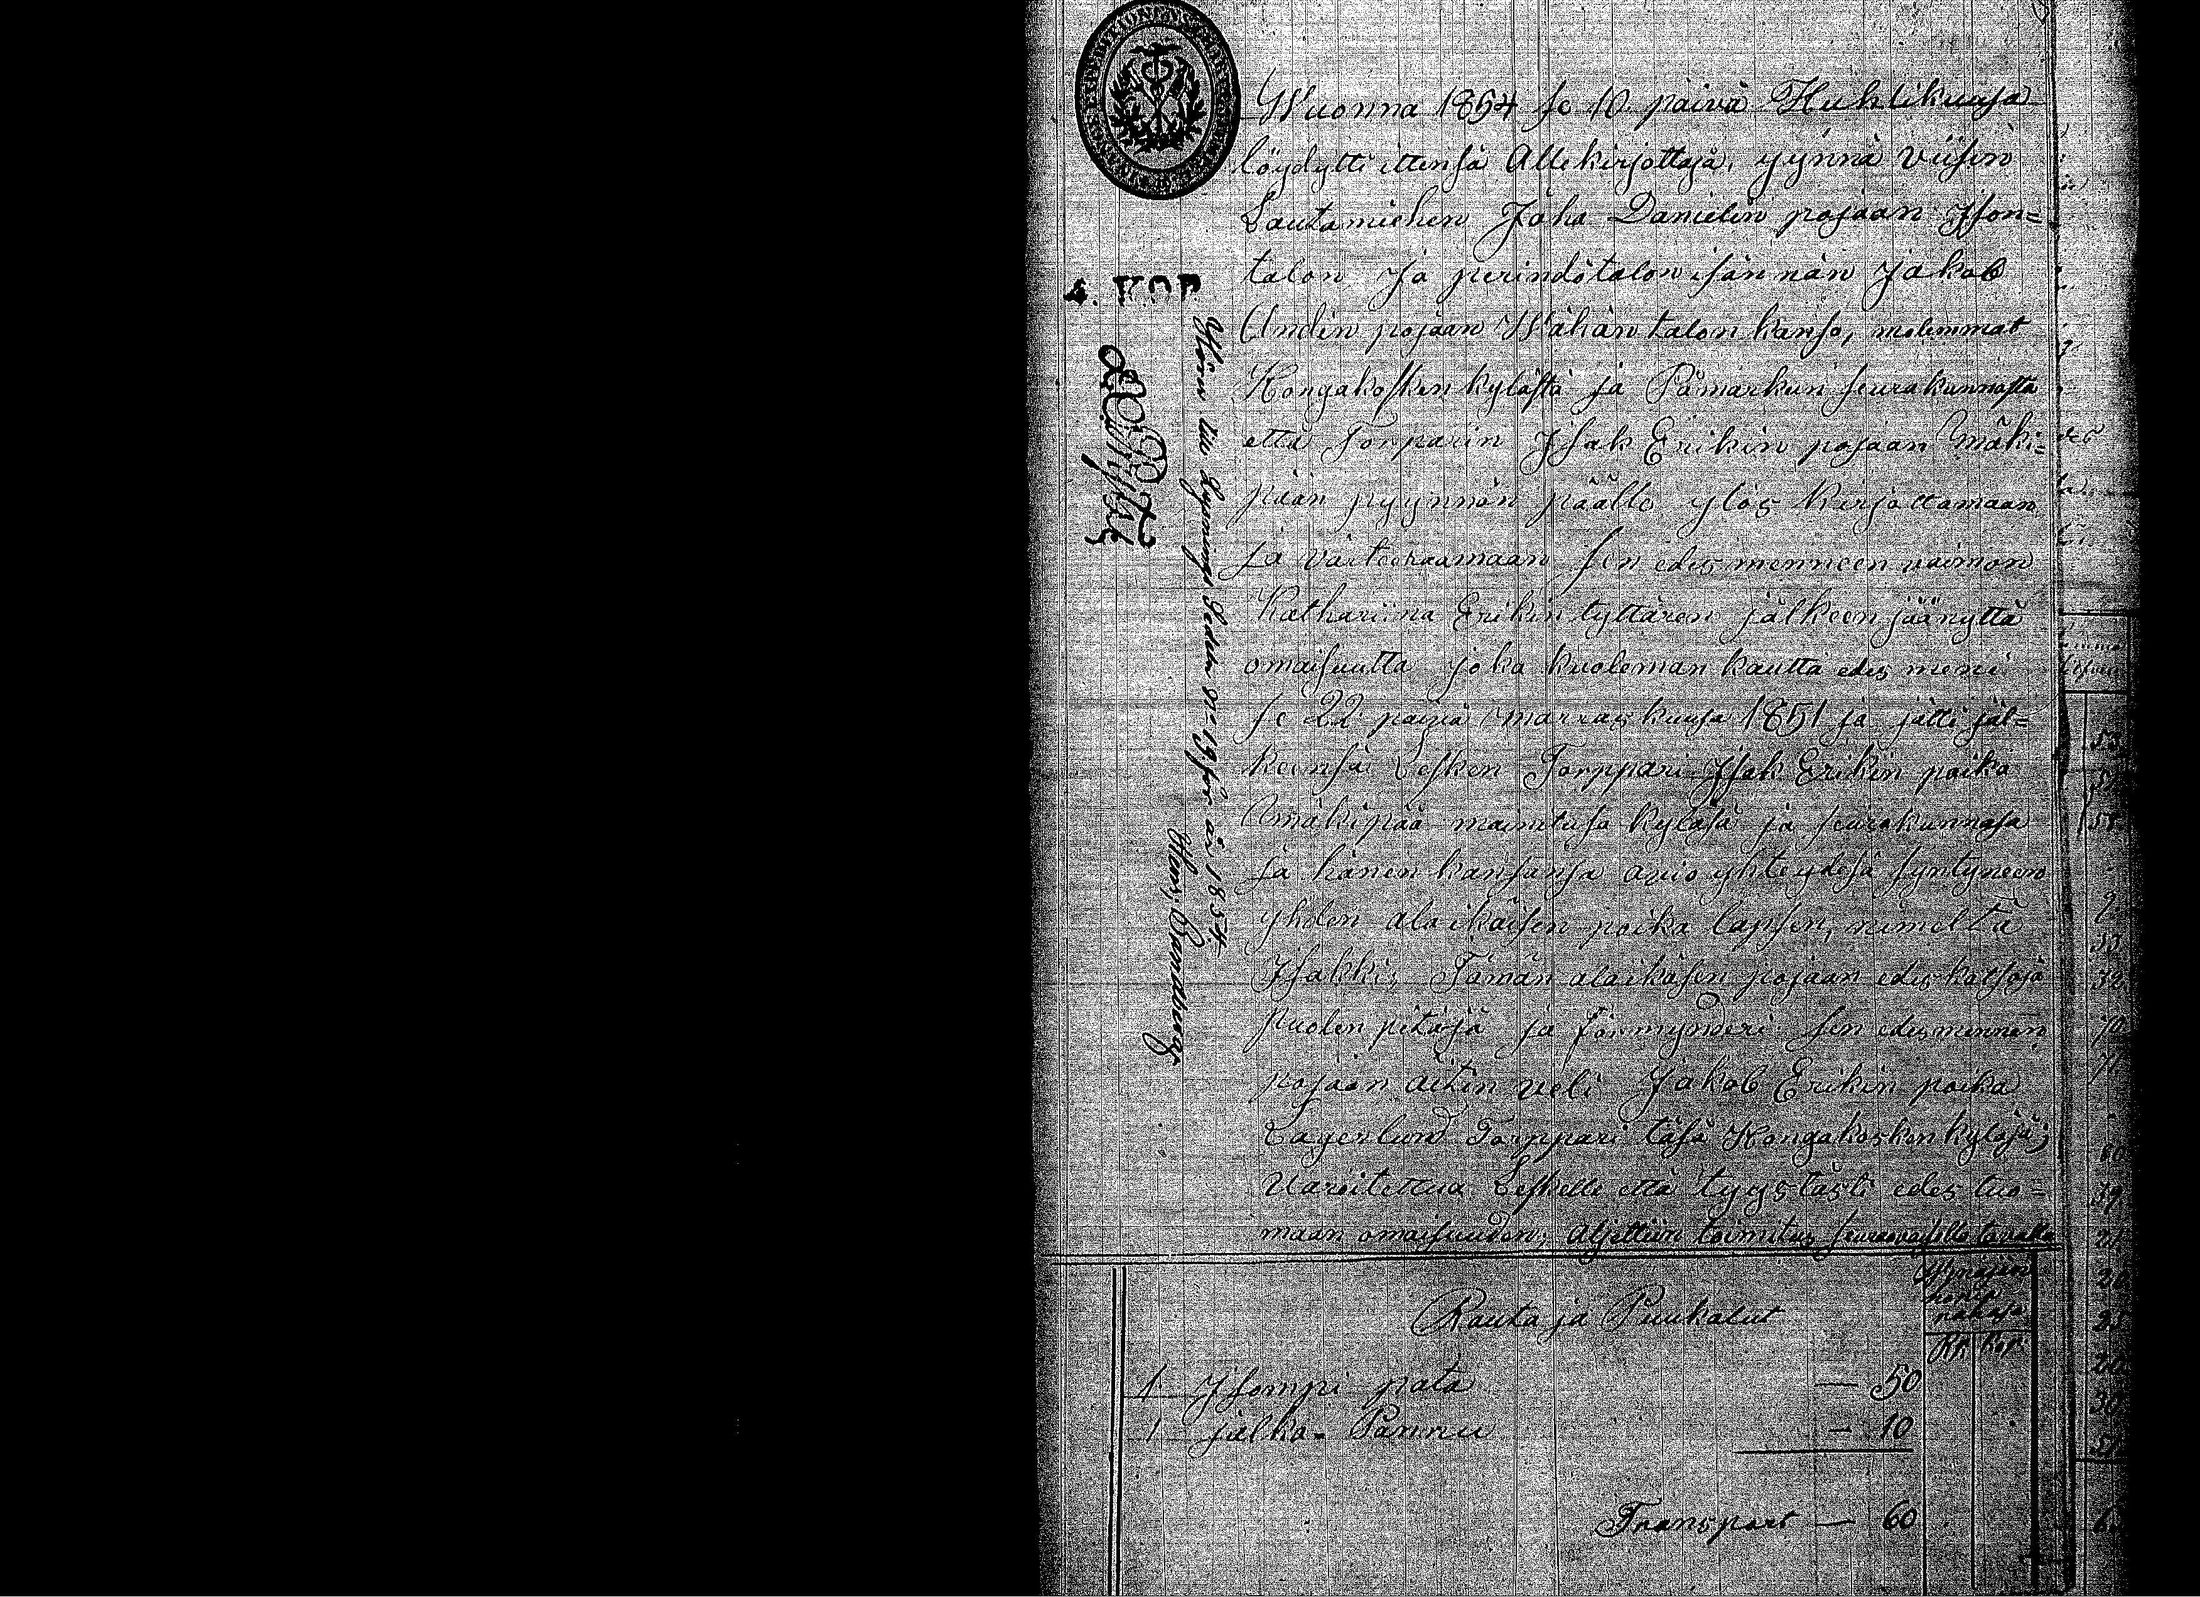 Wuonna 1854 se 10 päivä Huhtikuusa
löydytti ittensä Allekirjottaja, yynnä Viisin
Lautamiehen Joha Danielin pojaan Json=
talon ja perindötalon isännän Jakob
Andin pojaan Wähän talon kansa, molemmat
Kongakosken kylästä ja Pämarkun seurakunnasta
että Torparin Isak Erikin pojaan Mäki=
pään pyynnön päälle ylös kirjottamaan
ja värteeraamaan sen edesmenneen vaimon
Kathariina Erikin tyttären jälkeen jäänyttä
omaisuutta joka kuoleman kautta edes meni
se 22 päivä marraskuusa 1851 ja jätti jäl=
keensä Lesken Torppari Isak Erikin poika
Mäkipää mainitusa kyläsä ja seurakunnasa
ja hänen kansansa avioyhteydesä syntyneen
yhden alaikäisen poika lapsen, nimeltä
Isakki, Tämän alaikäsen pojaan edeskatsoja
puolen pitäjä ja förmynderi sen edesmennen
pojaan äitin veli Jakob Erikin poika
Lagerlund Torppari täsä Kongakosken kyläsä;
Varoitettua Leskelle että tyystästi edes tuo=
maan omaisuuden; Aljettiin toimitus seuraavaisella tavalla
4. KOP
Hörer till Lysningssedeln No 19 för år 1854
Hans Brandberg
Rauta ja Puukalut
Hopia
rahasa
Rp. Kop.
1 Isompi pata — 50
1 jalka-Pannu — 10
Transport — 60